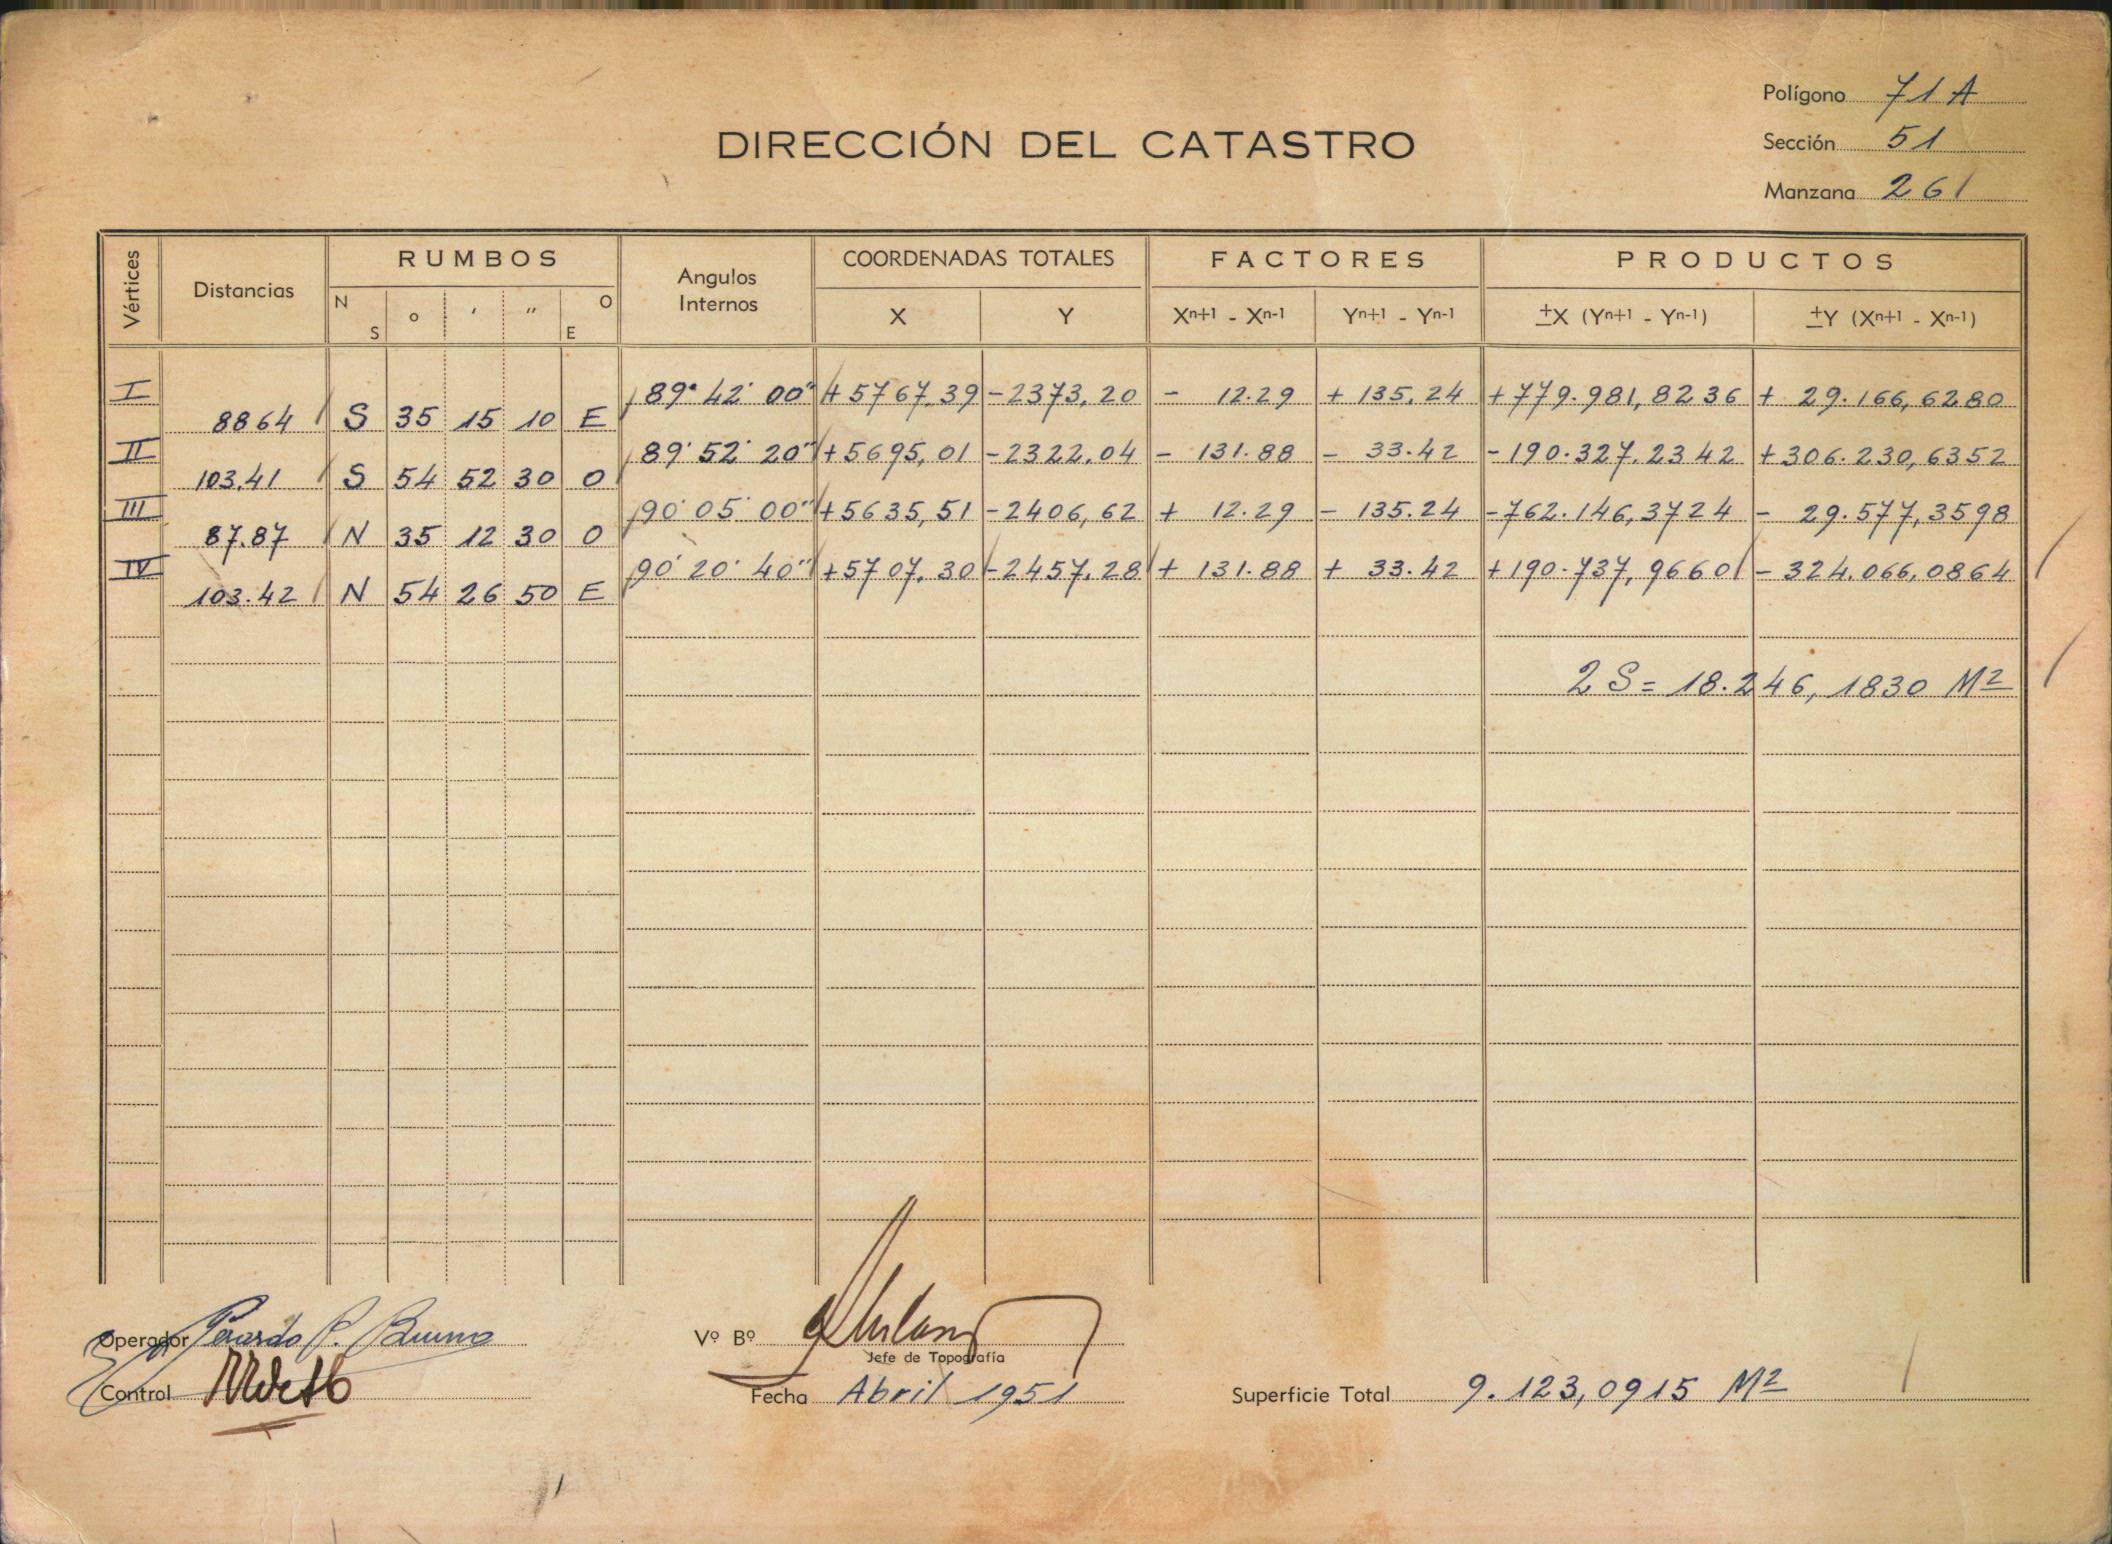 Polígono 71 A
DIRECCIÓN DEL CATASTRO
Sección 51
Manzana 261
Vértices Distancias RUMBOS Angulos Internos COORDENADAS TOTALES FACTORES PRODUCTOS
N S o ' " O E X Y Xn+1 - Xn-1 Yn+1 - Yn-1 ±X (Yn+1 - Yn-1) ±Y (Xn+1 - Xn-1)
I 89° 42' 00" +5767,39 -2373,20 - 12.29 + 135,24 +779.981,8236 + 29.166,6280
8864 S 35 15 10 E
II 89° 52' 20" +5695,01 -2322,04 - 131.88 - 33.42 -190.327,2342 +306.230,6352
103,41 S 54 52 30 O
III 90° 05' 00" +5635,51 -2406,62 + 12.29 - 135.24 -762.146,3724 - 29.577,3598
87.87 N 35 12 30 O
IV 90° 20' 40" +5707,30 -2457,28 + 131.88 + 33.42 +190.737,9660 - 324.066,0864
103.42 N 54 26 50 E
2 S = 18.246, 1830 M2
Operador P. Bruno
Vº Bº
Jefe de Topografía
Control
Fecha Abril 1951
Superficie Total 9.123,0915 M2